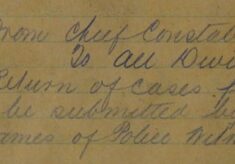 From Chief Constab
To all Divi
Return of cases f
be submitted
ames of Police Witn